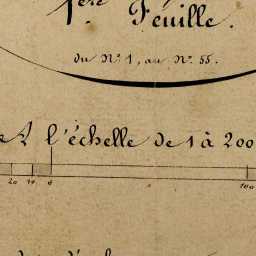 1ère Feuille.
du N° 1, au N° 55.
l'échelle de 1 à 200
20 10 0 100